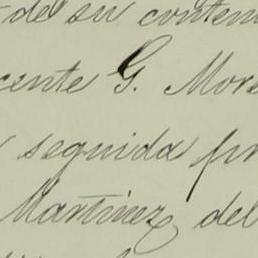 de su conten
cente G. More
seguida pr
Martinez del